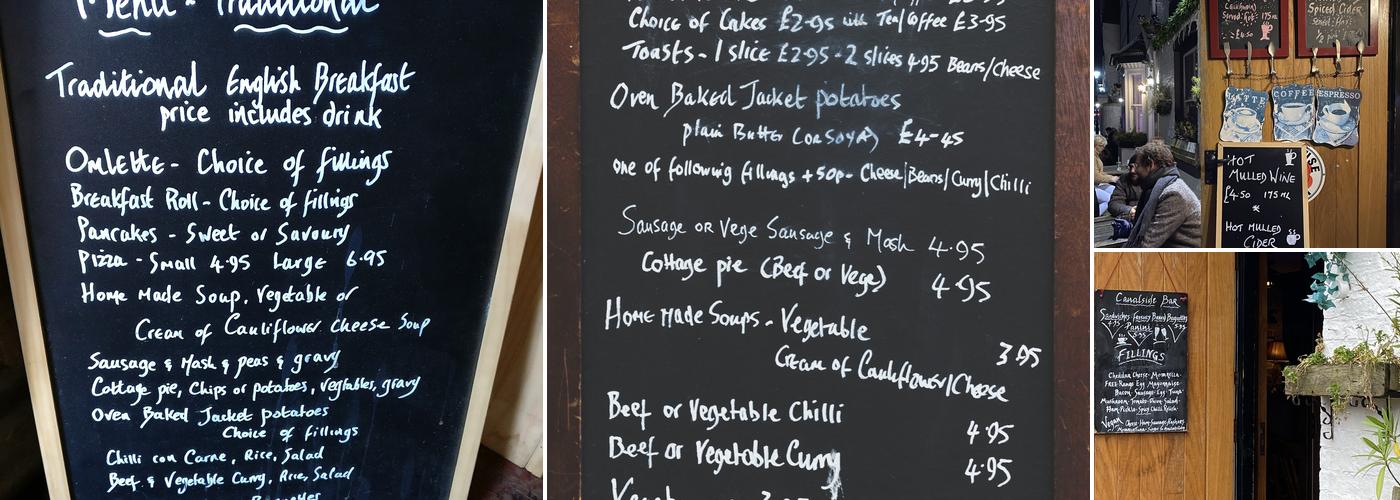 Menu - Traditional
Traditional English Breakfast
price includes drink
Omlette - Choice of fillings
Breakfast Roll - Choice of fillings
Pancakes - Sweet or Savoury
Pizza - Small 4.95 Large 6.95
Home Made Soup, Vegetable or
Cream of Cauliflower cheese Soup
Sausage & Mash & peas & gravy
Cottage pie, Chips or potatoes, vegtables, gravy
Oven Baked Jacket potatoes
Choice of fillings
Chilli con Carne, Rice, Salad
Beef & Vegetable Curry, Rice, Salad
Choice of Cakes £2.95 with Tea/Coffee £3.95
Toasts - 1 slice £2.95 - 2 slices 4.95 Beans/Cheese
Oven Baked Jacket potatoes
plain Butter (or Soya) £4-45
one of following fillings + 50p - Cheese/Beans/Curry/Chilli
Sausage or Vege Sausage & Mash 4.95
Cottage pie (Beef or Vege) 4.95
Home Made Soups - Vegetable
3.95
Cream of Cauliflower/Cheese
Beef or Vegetable Chilli
4.95
Beef or Vegetable Curry
4.95
175ml
£4.50
Spiced Cider
LATTE
COFFEE
ESPRESSO
HOT
MULLED WINE
£4.50 175ml
HOT MULLED
CIDER
Canalside Bar
Panini
FILLINGS
Cheddar Cheese - Mozzarella
Free Range Egg Mayonnaise
Bacon - Sausage - Egg - Tuna
Vegan